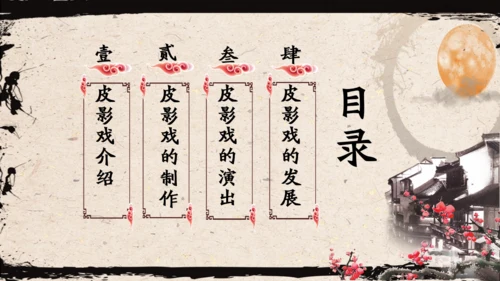 目录
壹
皮影戏介绍
贰
皮影戏的制作
叁
皮影戏的演出
肆
皮影戏的发展